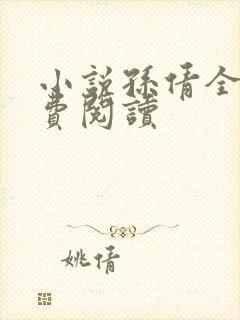 小說孫倩全
費閱讀
姚倩